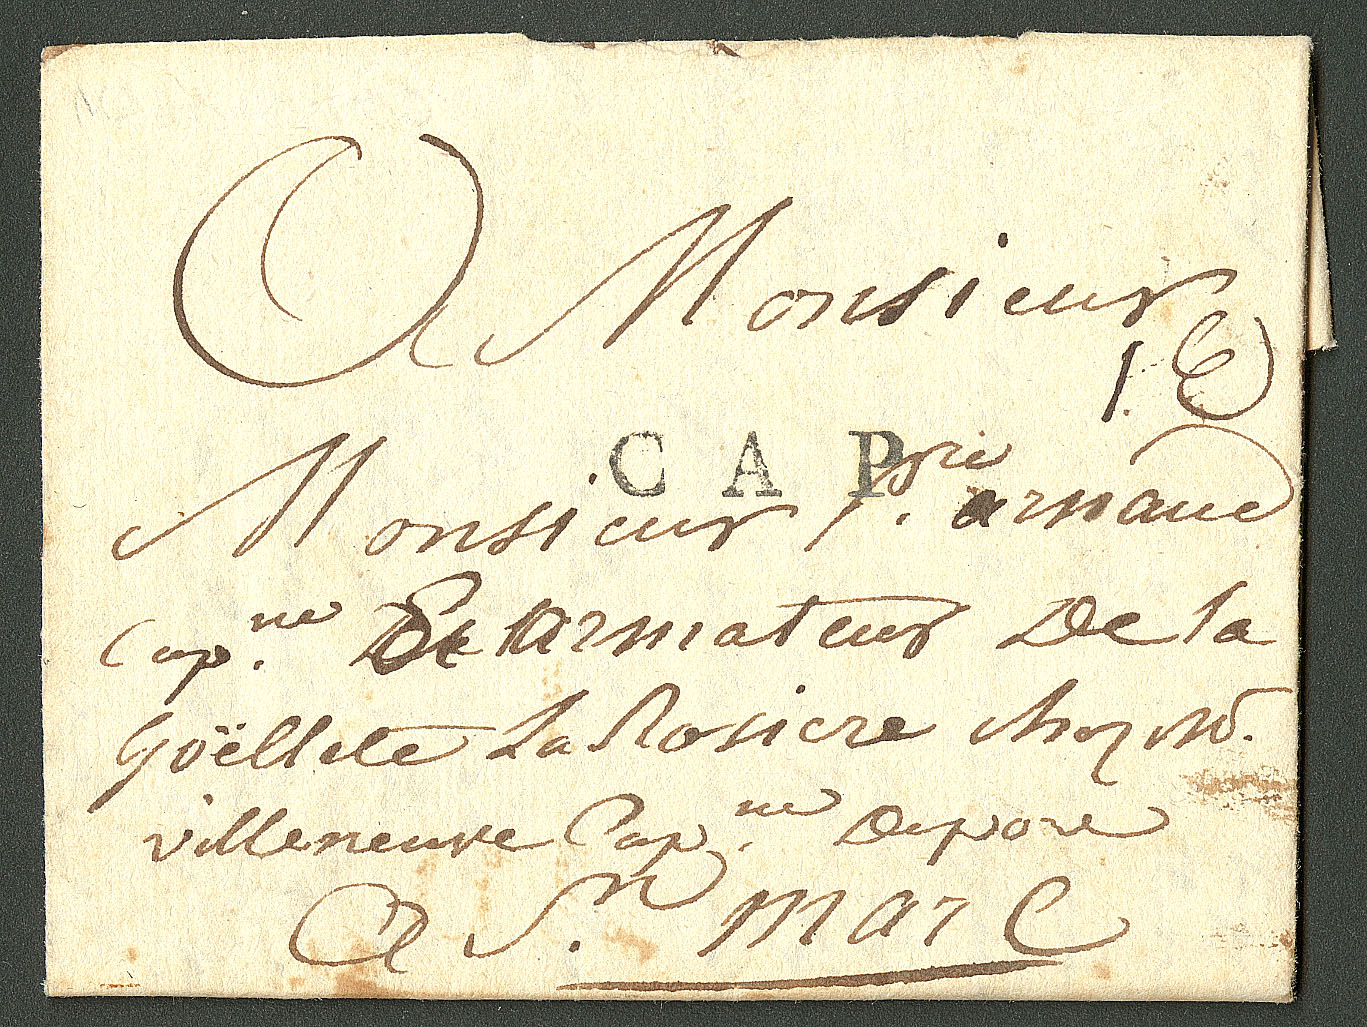 A Monsieur
1. E
C A P
Monsieur P.re arnaud
Cap.ne Et armateur De la
Goëllete La Rosiere chez Mr.
villeneuve Cap.ne De port
A S.n marC